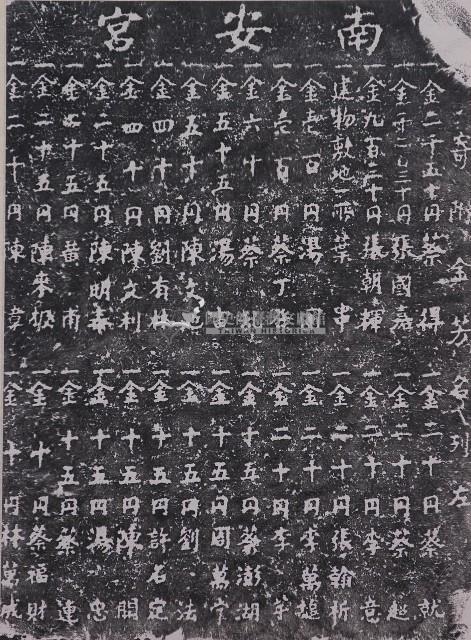 南安宮
寄附金芳名列左
一金二千五十円蔡得
一金円張國嘉
一金九百二十円張朝輝
一建物敷地一所葉串
一金百円湯
一金壱百円蔡丁
一金六十円蔡
一金五十五円湯
一金五十円陳文
一金四十円劉有林
一金四十円陳文利
一金二十五円陳明春
一金二十五円黄甫
一金二十五円陳來
一金二十円陳意
一金二十円蔡就
一金二十円蔡
一金二十円李意
一金二十円張翰析
一金二十円李萬
一金二十円李年
一金十五円蔡澎湖
一金十五円周萬
一金十五円劉法
一金十五円許名定
一金十五円陳開
一金十五円湯忠
一金十五円蔡連
一金十円蔡福財
一金十円林萬成